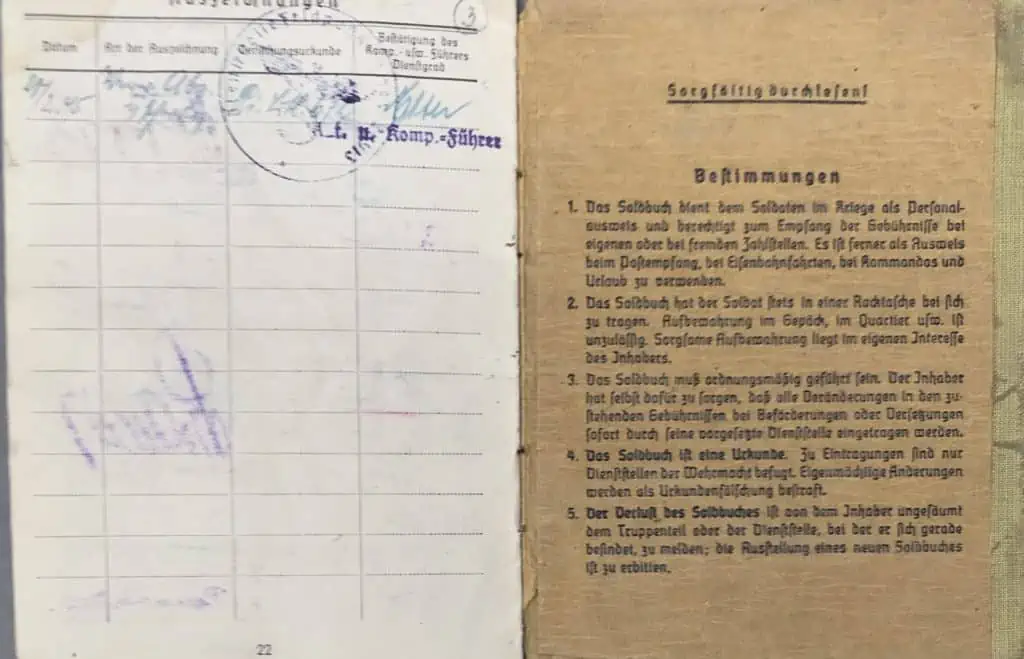 Auszeichnungen
3
Datum
Art der Auszeichnung
Verleihungsurkunde
Bestätigung des
Komp.- usw. Führers
Dienstgrad
u. Komp.-Führer
22
Sorgfältig durchlesen!
Bestimmungen
1. Das Soldbuch dient dem Soldaten im Kriege als Personal-
ausweis und berechtigt zum Empfang der Gebührnisse bei
eigenen oder bei fremden Zahlstellen. Es ist ferner als Ausweis
beim Postempfang, bei Eisenbahnfahrten, bei Kommandos und
Urlaub zu verwenden.
2. Das Soldbuch hat der Soldat stets in einer Rocktasche bei sich
zu tragen. Aufbewahrung im Gepäck, im Quartier usw. ist
unzulässig. Sorgsame Aufbewahrung liegt im eigenen Interesse
des Inhabers.
3. Das Soldbuch muß ordnungsmäßig geführt sein. Der Inhaber
hat selbst dafür zu sorgen, daß alle Veränderungen in den zu-
stehenden Gebührnissen bei Beförderungen oder Versetzungen
sofort durch seine vorgesetzte Dienststelle eingetragen werden.
4. Das Soldbuch ist eine Urkunde. Zu Eintragungen sind nur
Dienststellen der Wehrmacht befugt. Eigenmächtige Änderungen
werden als Urkundenfälschung bestraft.
5. Der Verlust des Soldbuches ist von dem Inhaber ungesäumt
dem Truppenteil oder der Dienststelle, bei der er sich gerade
befindet, zu melden; die Ausstellung eines neuen Soldbuches
ist zu erbitten.